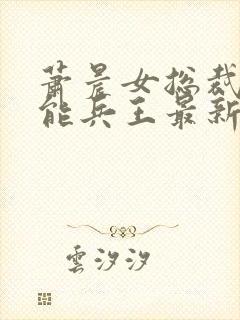 蕭晨女總裁
能兵王最新
雲汐汐